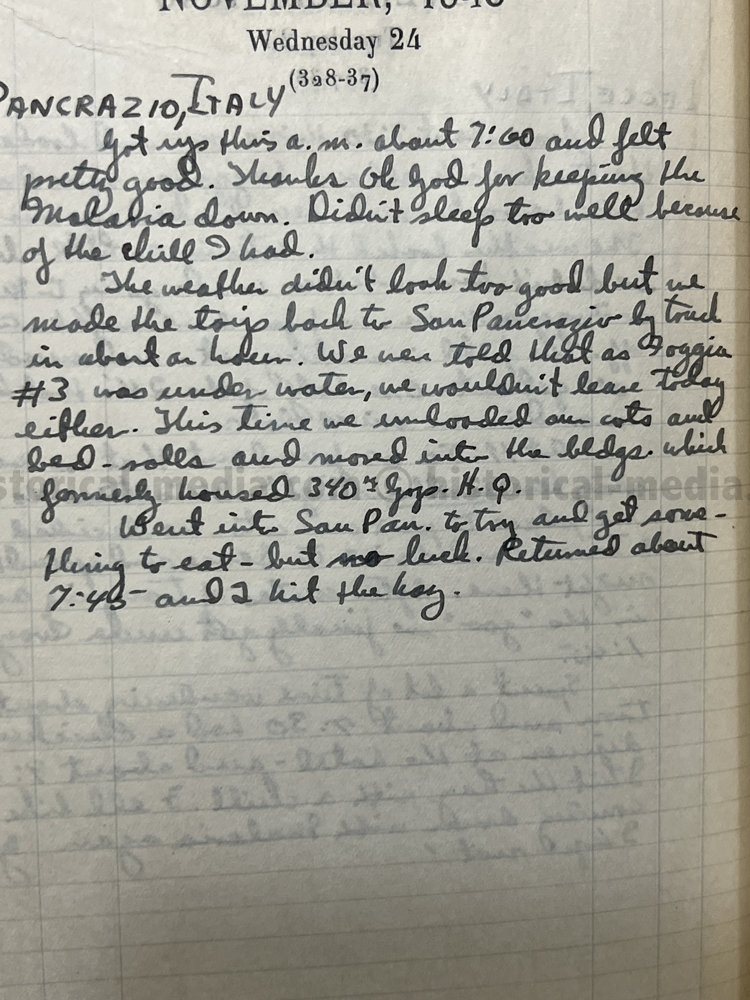 NOVEMBER, 1943
Wednesday 24
(328-37)
PANCRAZIO, ITALY
Got up this a.m. about 7:00 and felt
pretty good. Thanks Oh God for keeping the
Malaria down. Didn't sleep too well because
of the chill I had.
The weather didn't look too good but we
made the trip back to San Pancrazio by truck
in about an hour. We were told that as Foggia
#3 was under water, we wouldn't leave today
either. This time we unloaded our cots and
bed-rolls and moved into the bldgs. which
formerly housed 340th Grp. H.Q.
Went into San Pan. to try and get some-
thing to eat - but no luck. Returned about
7:45 - and I hit the hay.
historical-media